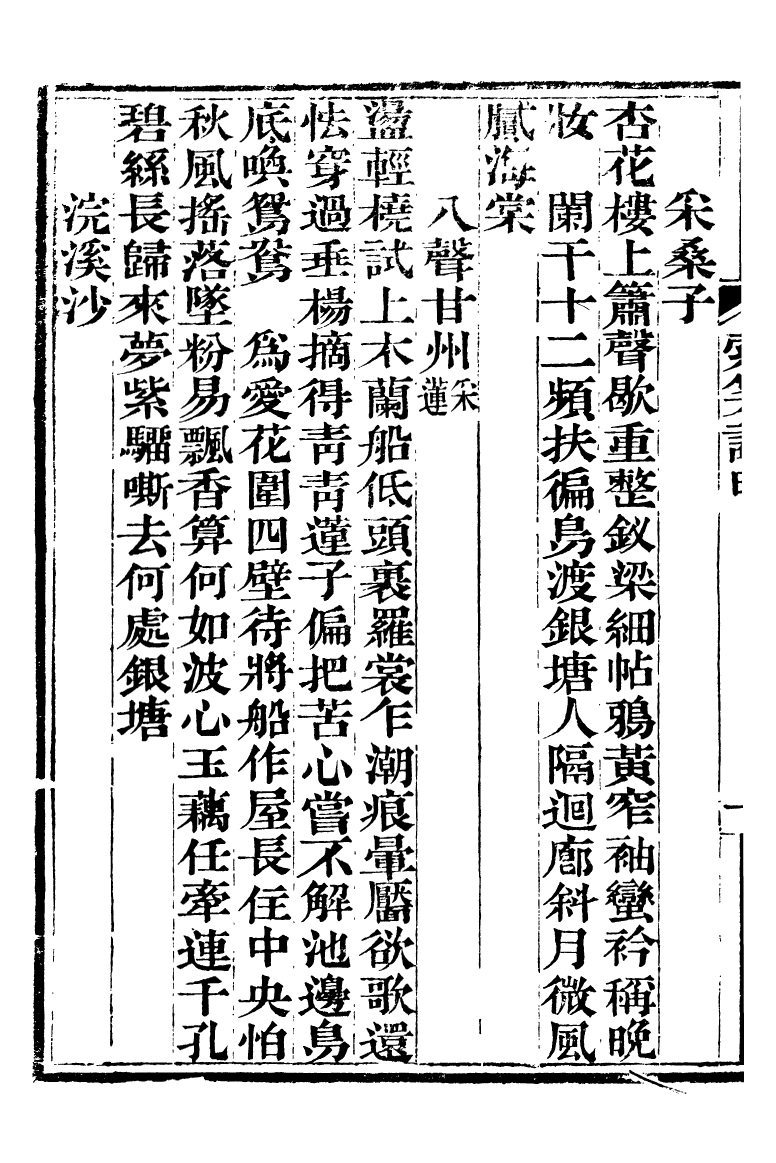 采桑子
杏花樓上簫聲歇重整釵梁細帖鴉黃窄袖蠻衿稱晚
妝　闌干十二頻扶徧鳥渡銀塘人隔迴廊斜月微風
膩海棠
八聲甘州采蓮
盪輕橈試上木蘭船低頭裹羅裳乍潮痕暈靨欲歌還
怯穿過垂楊摘得靑靑蓮子偏把苦心嘗不解池邊鳥
底喚鴛鴦　爲愛花圍四壁待將船作屋長住中央怕
秋風搖落墜粉易飄香算何如波心玉藕任牽連千孔
碧絲長歸來夢紫騮嘶去何處銀塘
浣溪沙